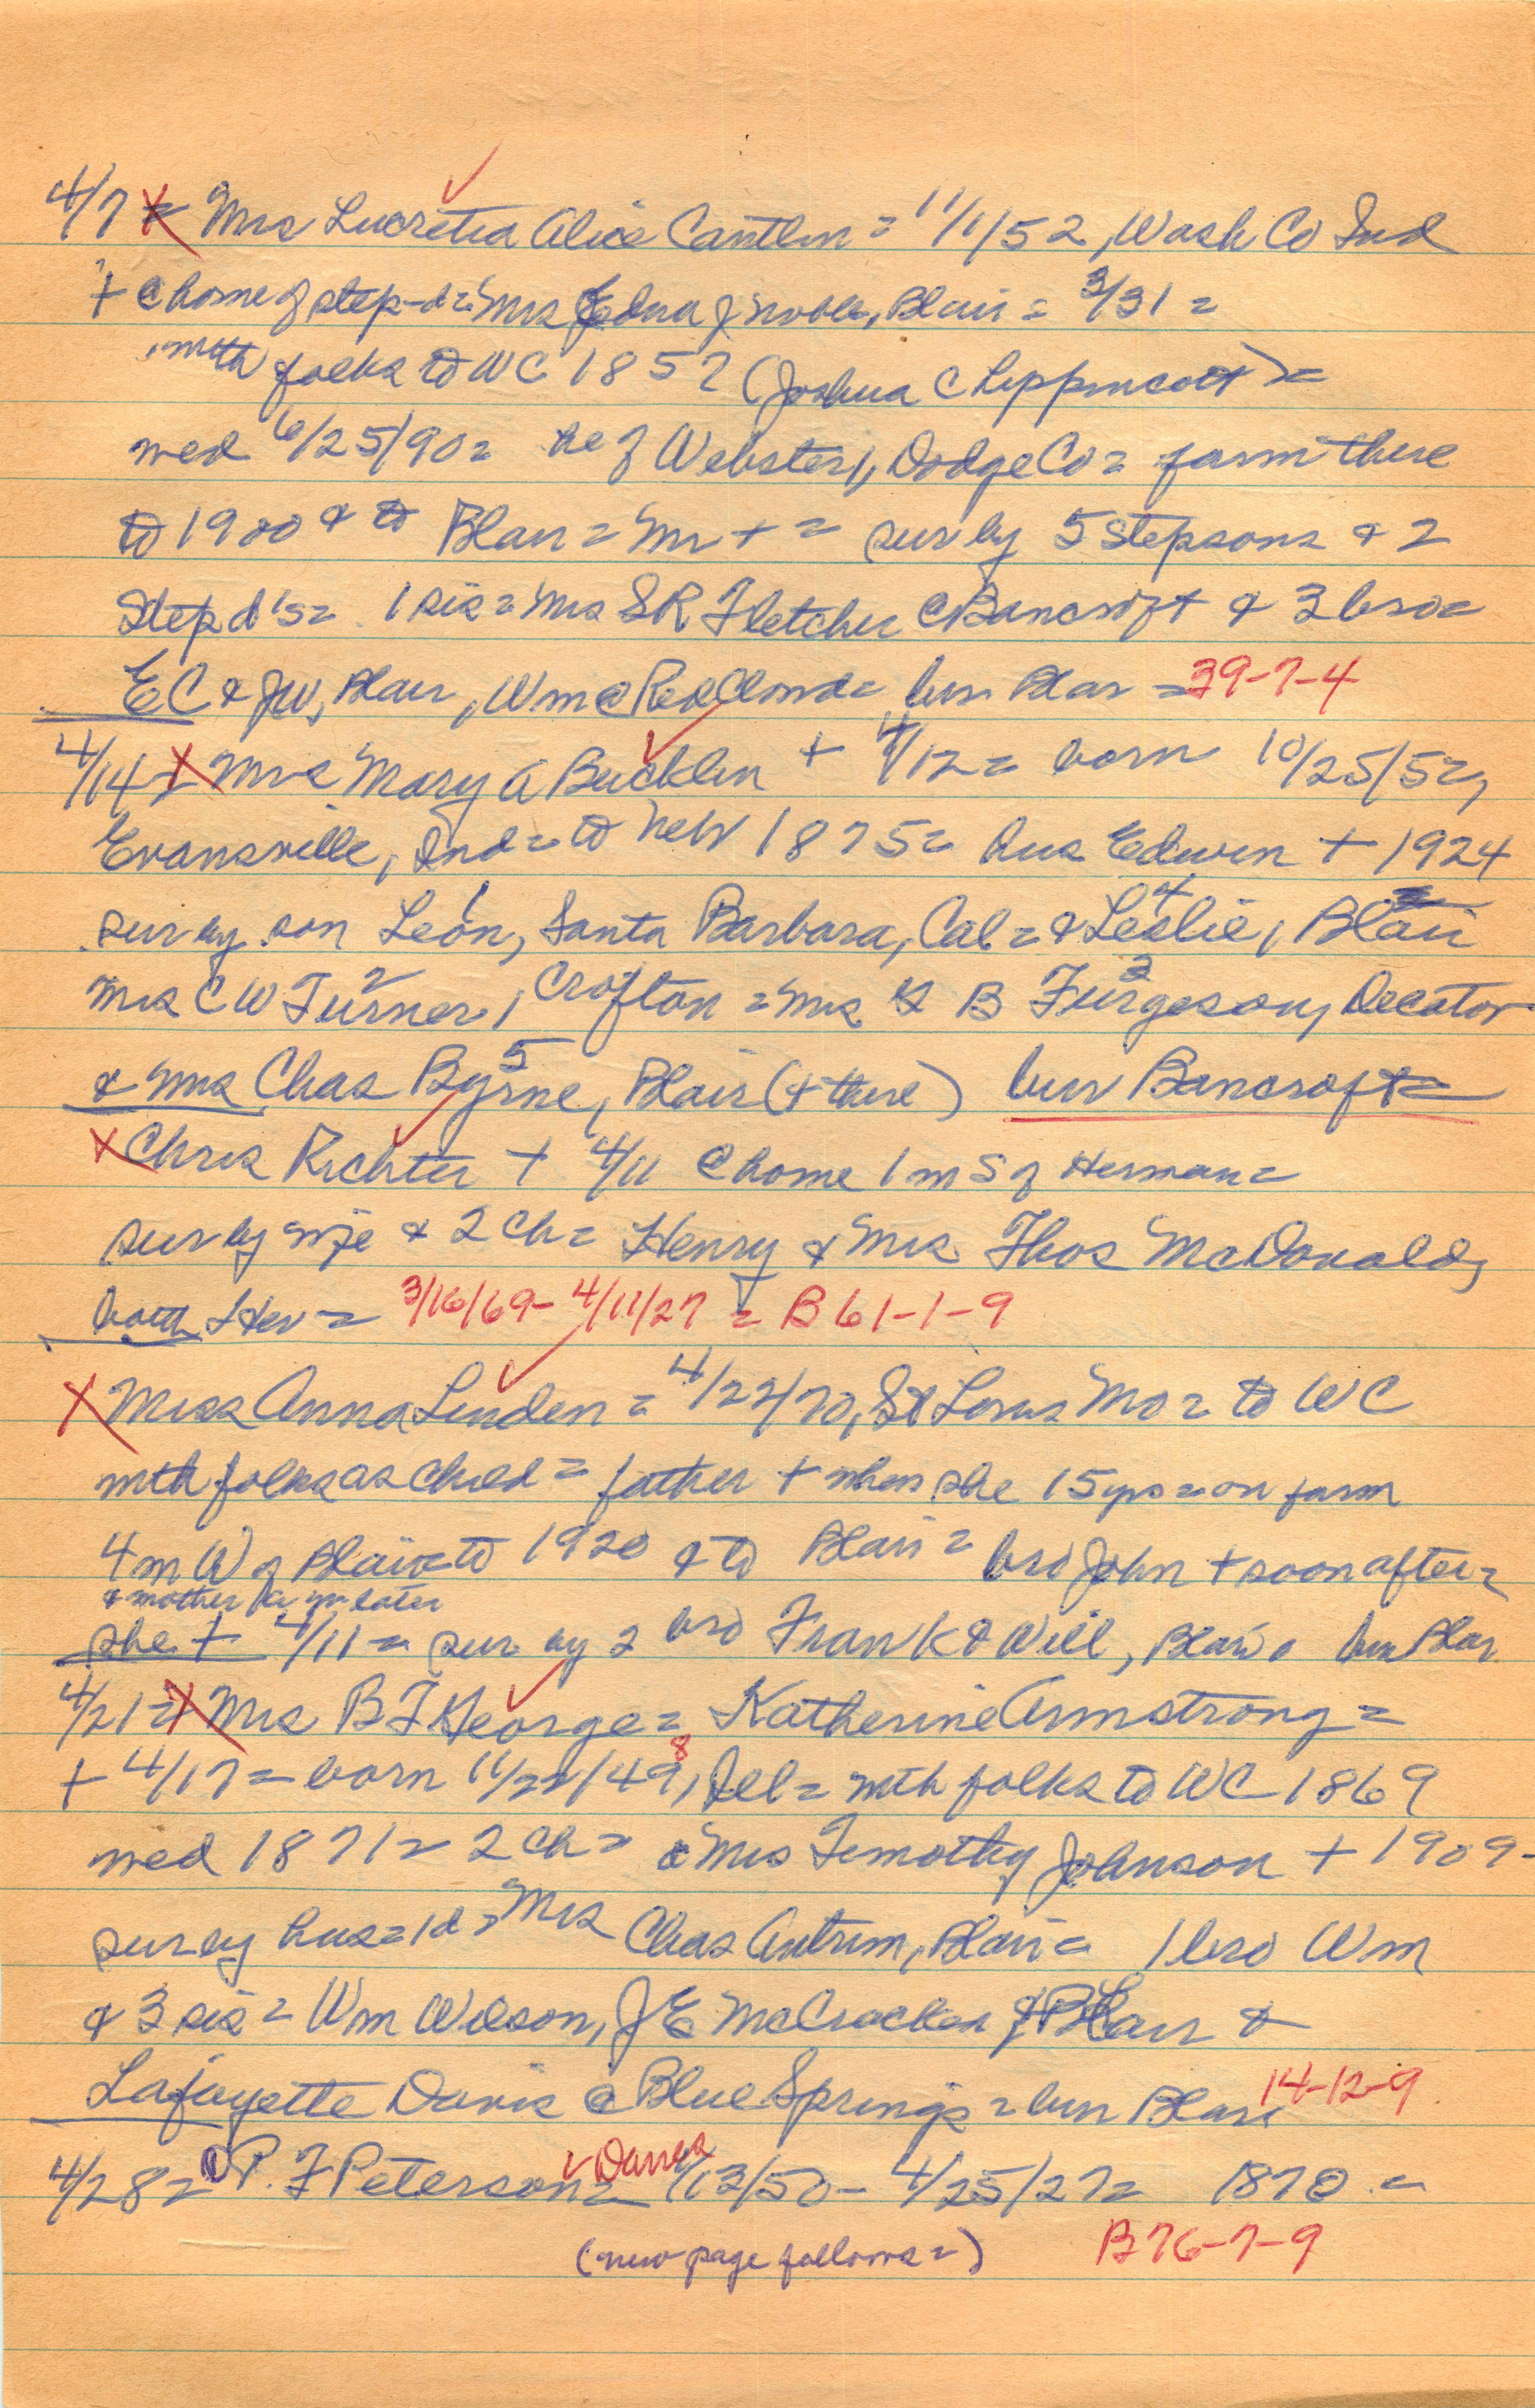 4/7 X = Mrs Lucretia Alice Cantlin = 11/1/52, Wash Co Ind
+ @ home of step-d = Mrs Edna J Noble, Blair = 3/31 =
with folks to WC 1857 (Joshua C Lippincott) =
wed 6/25/90 = he of Webster, Dodge Co = farm there
to 1900 & to Blair = Mr + = sur by 5 stepsons & 2
step d's = 1 sis = Mrs SR Fletcher @ Bancroft & 3 bro =
EC & JW, Blair, Wm @ Red Cloud = bur Blair = 39-7-4
4/14 = X Mrs Mary A Bucklin + 4/12 = born 10/25/52,
Evansville, Ind = to Neb 1875 = hus Edwin + 1924
sur by son Leon, 1 Santa Barbara, Cal = & Leslie, 4 Blair
Mrs C W Turner, 2 Crofton = Mrs B Furgeson, 3 Decator
& Mrs Chas Byrne, 5 Blair (+ there) bur Bancroft =
X Chris Richter + 4/11 @ home 1 m S of Herman =
sur by wife & 2 ch = Henry & Mrs Thos McDonald,
both Her = 3/16/69 - 4/11/27 = B 61-1-9
X Miss Anna Linden = 4/22/70, St Louis Mo = to WC
with folks as child = father + when she 15 yrs = on farm
4 m W of Blair = to 1920 & to Blair = bro John + soon after =
& mother yr later
she + 4/11 = sur by 2 bro Frank & Will, Blair = bur Blair
4/21 = X Mrs B F George = Katherine Armstrong =
+ 4/17 = born 11/22/49, 8 Ill = with folks to WC 1869
wed 1871 = 2 ch = Mrs Timothy Johnson + 1909 -
sur by hus = 1 d = Mrs Chas Antrim, Blair = 1 bro Wm
& 3 sis = Wm Wilson, J E McCracken Blair &
Lafayette Davis @ Blue Springs = bur Blair 14-12-9
4/28 = P. F Peterson = 13/50 - 4/25/27 = 1870 =
(new page follows =) B 76-7-9